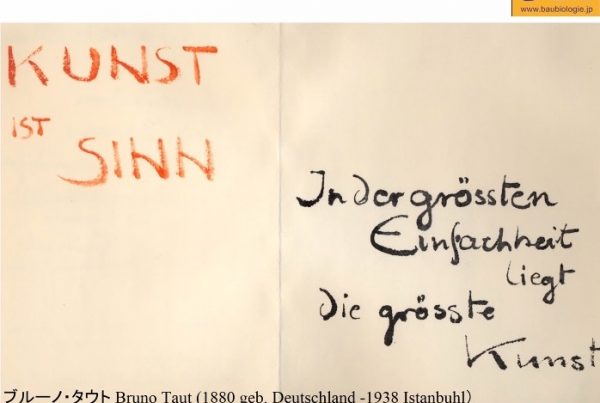 www.baubiologie.jp
KUNST
IST
SINN
In der grössten
Einfachheit
liegt
die grösste
Kunst
ブルーノ・タウト Bruno Taut (1880 geb. Deutschland -1938 Istanbuhl)